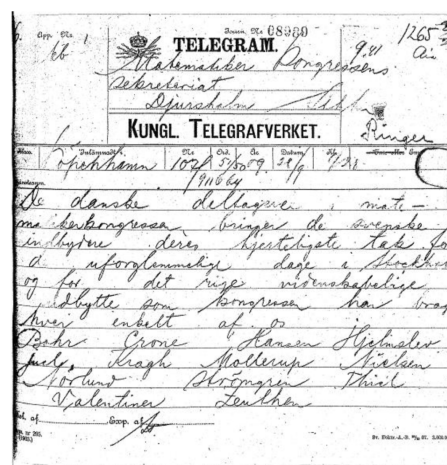 App. No 1 Journ. No 08989
TELEGRAM.
Matematiker Kongressens
sekretariat
Djursholm
KUNGL. TELEGRAFVERKET.
Ringer
Klass. Inlämnad i No Ord. Kl.
Köpenhamn
De danske deltagere i mate-
matikerkongressen bringer de svenske
indbydere deres hjerteligste tak for
uforglemmelige dage i Stockholm
og for det rige videnskabelige
udbytte som kongressen har brag
hver enkelt af os
Bohr Crone Hansen Hjelmslev
Juel Kragh Mollerup Nielsen
Nörlund Strömgren Thiel
Valentiner Zeuthen